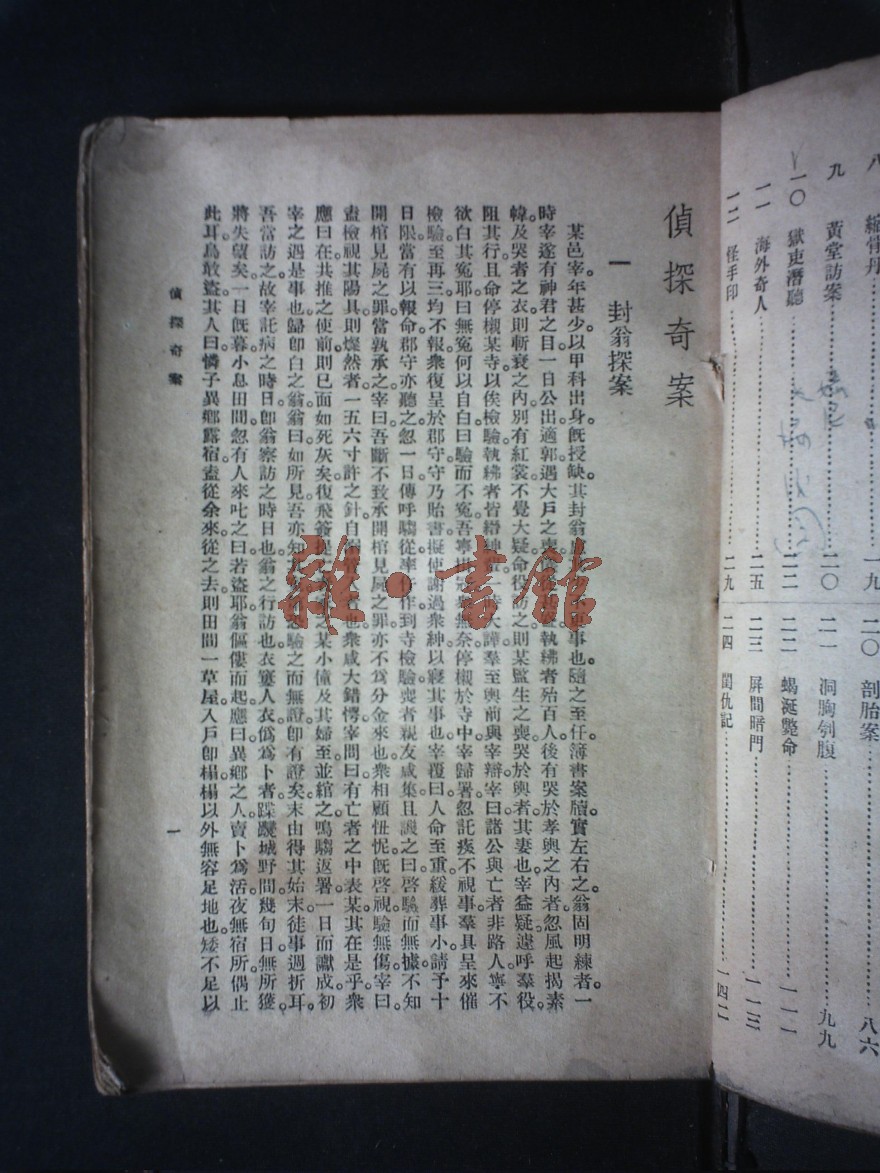 偵探奇案
一 封翁探案
某邑宰年甚少以甲科出身旣授缺其封翁事也隨之至任簿書案牘實左右之翁固明練者一
時宰遂有神君之目一日公出適郭遇大戶之喪執紼者殆百人後有哭於孝輿之內者忽風起揭素
幃及哭者之衣則斬衰之內別有紅裳不覺大疑命役訪之則某監生之喪哭於輿者其妻也宰益疑遽呼羣役
阻其行且命停櫬某寺以俟檢驗執紼者皆縉紳大譁羣至輿前與宰辯宰曰諸公與亡者非路人寧不
欲白其冤耶曰無冤何以自白曰驗而不冤吾寧冠無奈停櫬於寺中宰歸署忽託疾不視事羣具呈來催
檢驗至再三均不報衆復呈於郡守守乃貽書擬使謝過衆紳以寢其事也宰覆曰人命至重緩葬事小請予十
日限當有以報命郡守亦聽之忽一日傳呼騶從率仵作到寺檢驗喪者親友咸集且譏之曰啓驗而無據不知
開棺見屍之罪當孰承之宰曰吾斷不致承開棺見屍之罪亦不爲分金來也衆相顧忸怩旣啓視驗無傷宰曰
盍檢視其陽具則燦然者一五六寸許之針自也衆咸大錯愕宰問曰有亡者之中表某其在是乎衆
應曰在共推之使前則已面如死灰矣復飛簽提之某小僮及其婦至並綰之鳴騶返署一日而讞成初
宰之遇是事也歸卽白之翁翁曰如所見吾亦知驗之而無證卽有證矣末由得其始末徒事週折耳
吾當訪之故宰託病之時日卽翁察訪之時日也翁之行訪也衣寠人衣僞爲卜者蹀躞城野間幾旬日無所獲
將失望矣一日旣暮小息田間忽有人來叱之曰若盜耶翁傴僂而起應曰異鄉之人賣卜爲活夜無宿所偶止
此耳烏敢盜其人曰憐子異鄉露宿盍從余來從之去則田間一草屋入戶卽榻榻以外無容足地也矮不足以
偵探奇案
一
八 縮骨丹 一九
九 黃堂訪案 二〇
一〇 獄吏潛聽 二二
一一 海外奇人 二五
一二 怪手印 二九
二〇 剖胎案 八六
二一 洞胸刳腹 九九
二二 蝎涎斃命 一一一
二三 屏間暗門 一一三
二四 閨仇記 一四二
雜·書館